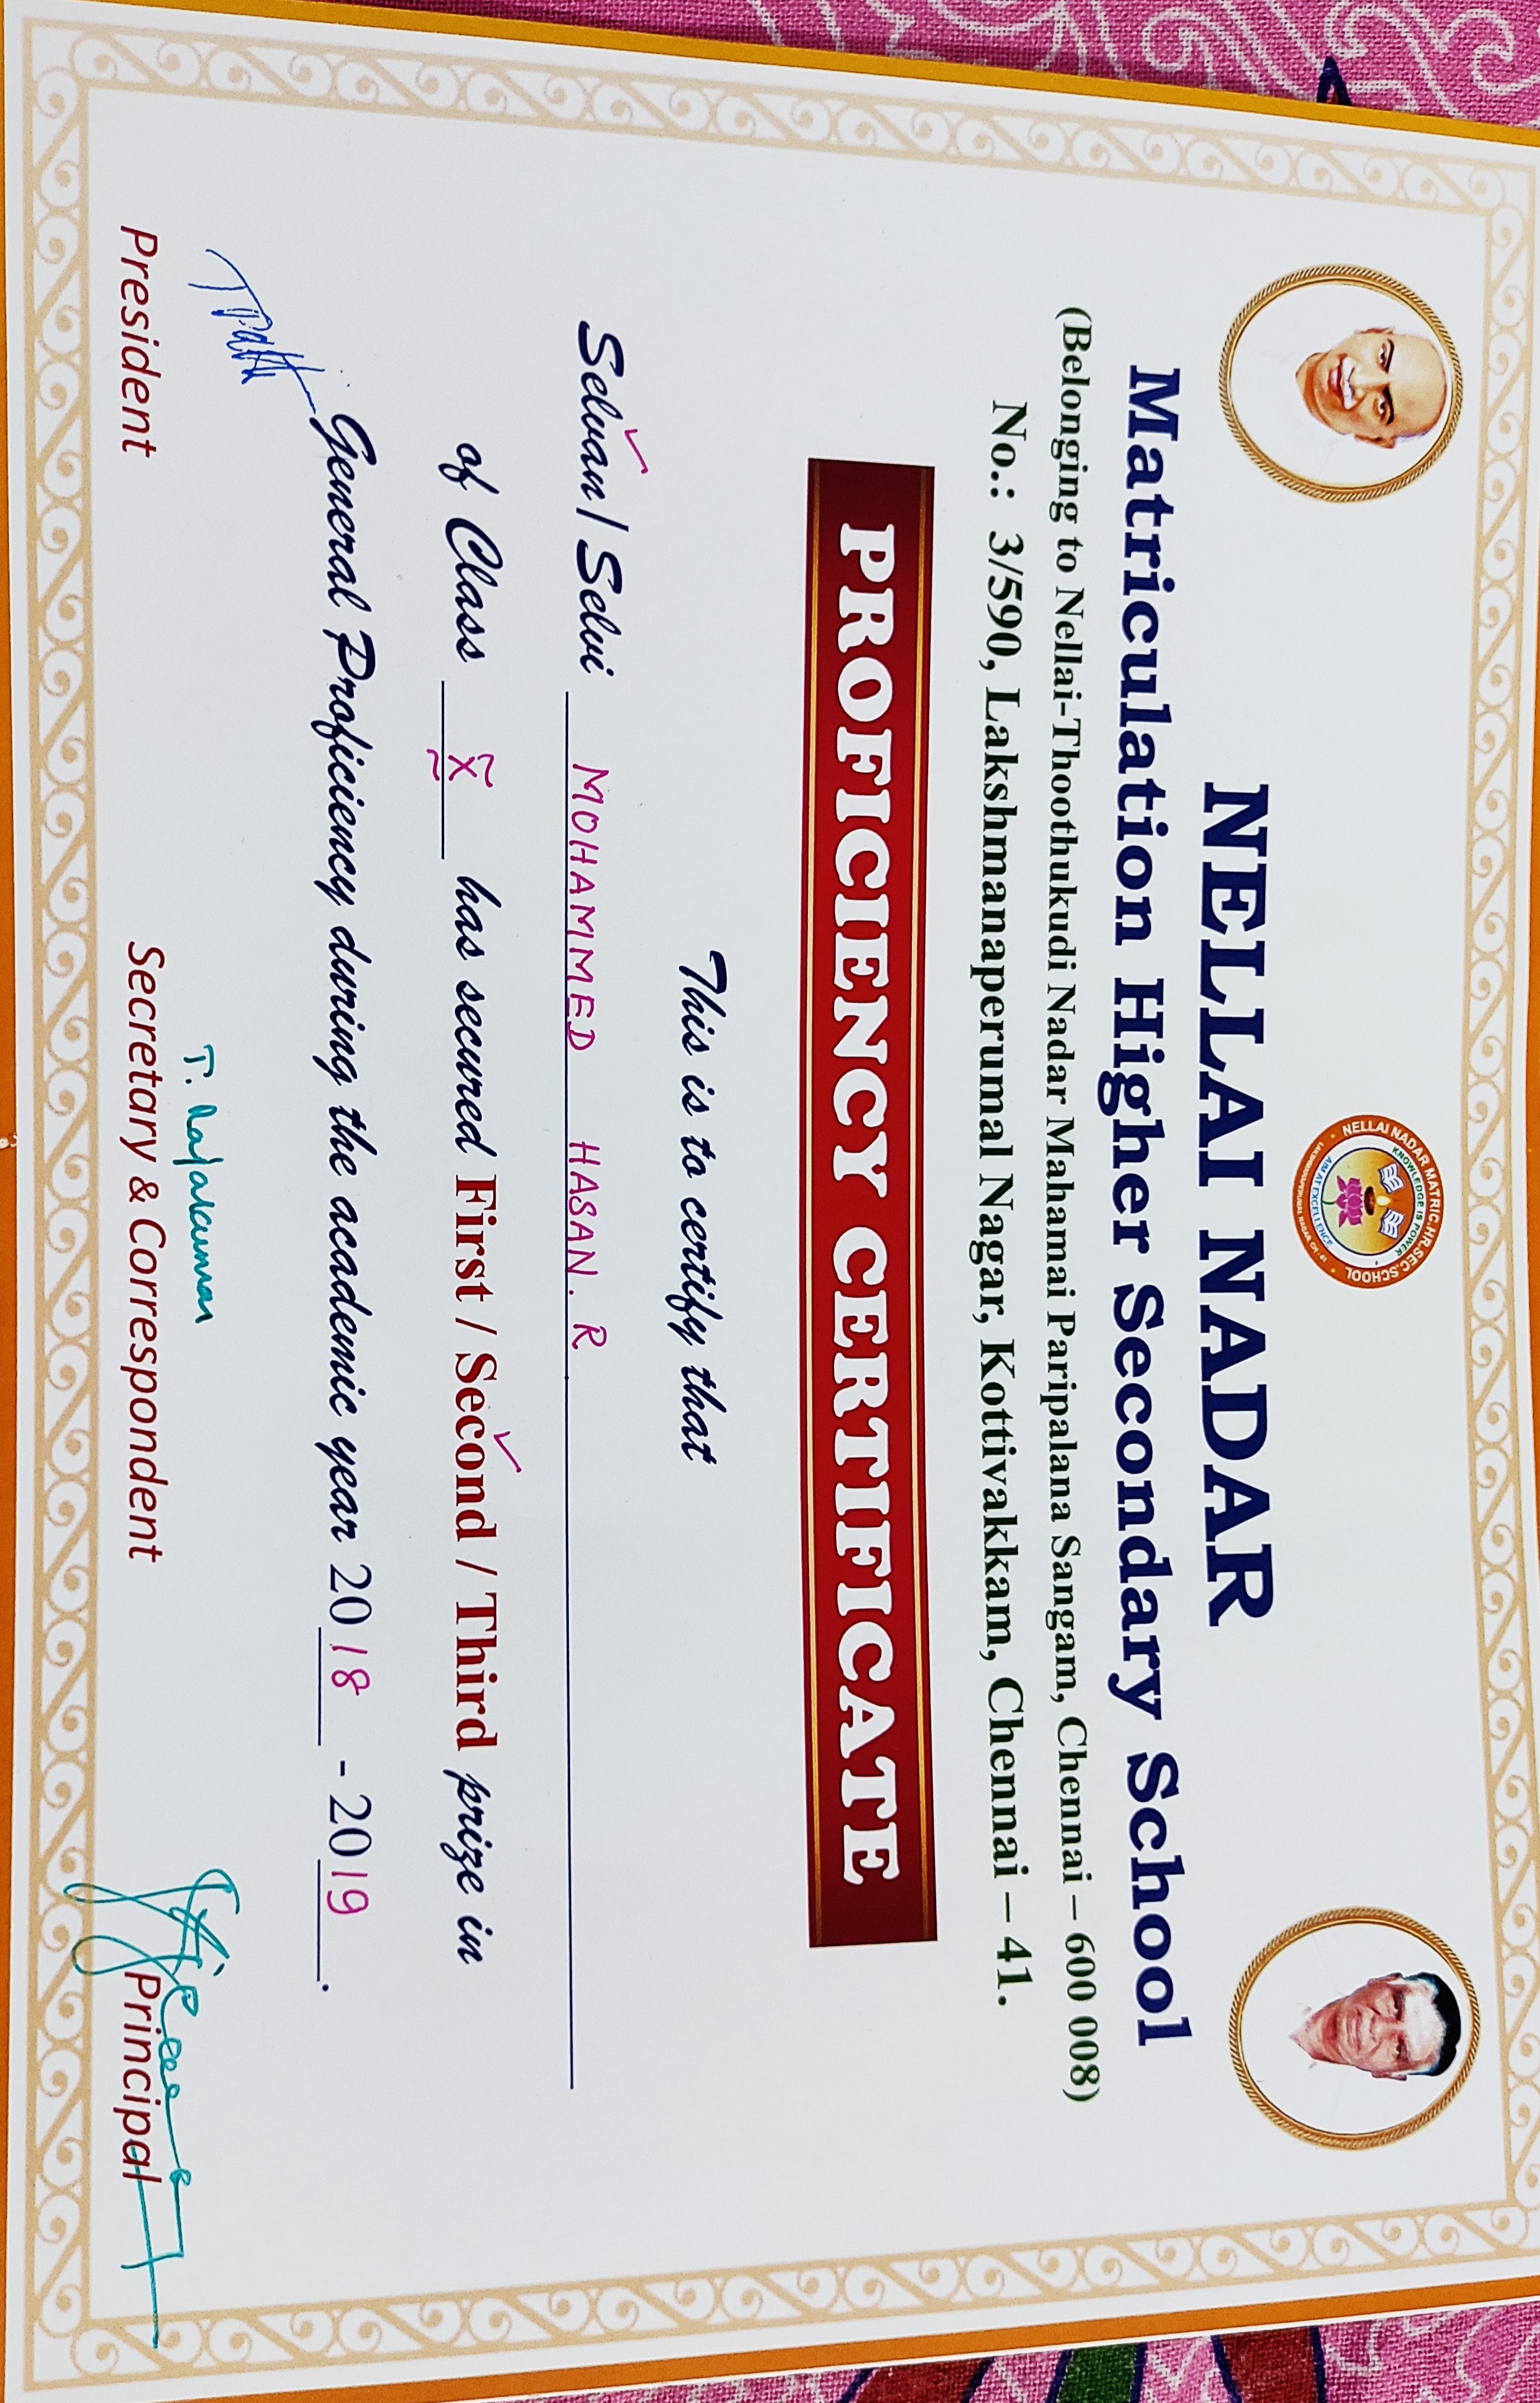 NELLAI NADAR MATRIC.HR.SEC.SCHOOL
KNOWLEDGE IS POWER
AIM AT EXCELLENCE
LAKSHMANAPERUMAL NAGAR, CH - 41
NELLAI NADAR
Matriculation Higher Secondary School
(Belonging to Nellai-Thoothukudi Nadar Mahamai Paripalana Sangam, Chennai – 600 008)
No.: 3/590, Lakshmanaperumal Nagar, Kottivakkam, Chennai – 41.
PROFICIENCY CERTIFICATE
This is to certify that
Selvan / Selvi MOHAMMED HASAN. R
of Class X has secured First / Second / Third prize in
General Proficiency during the academic year 2018 - 2019.
T. Rajakumar
President Secretary & Correspondent Principal